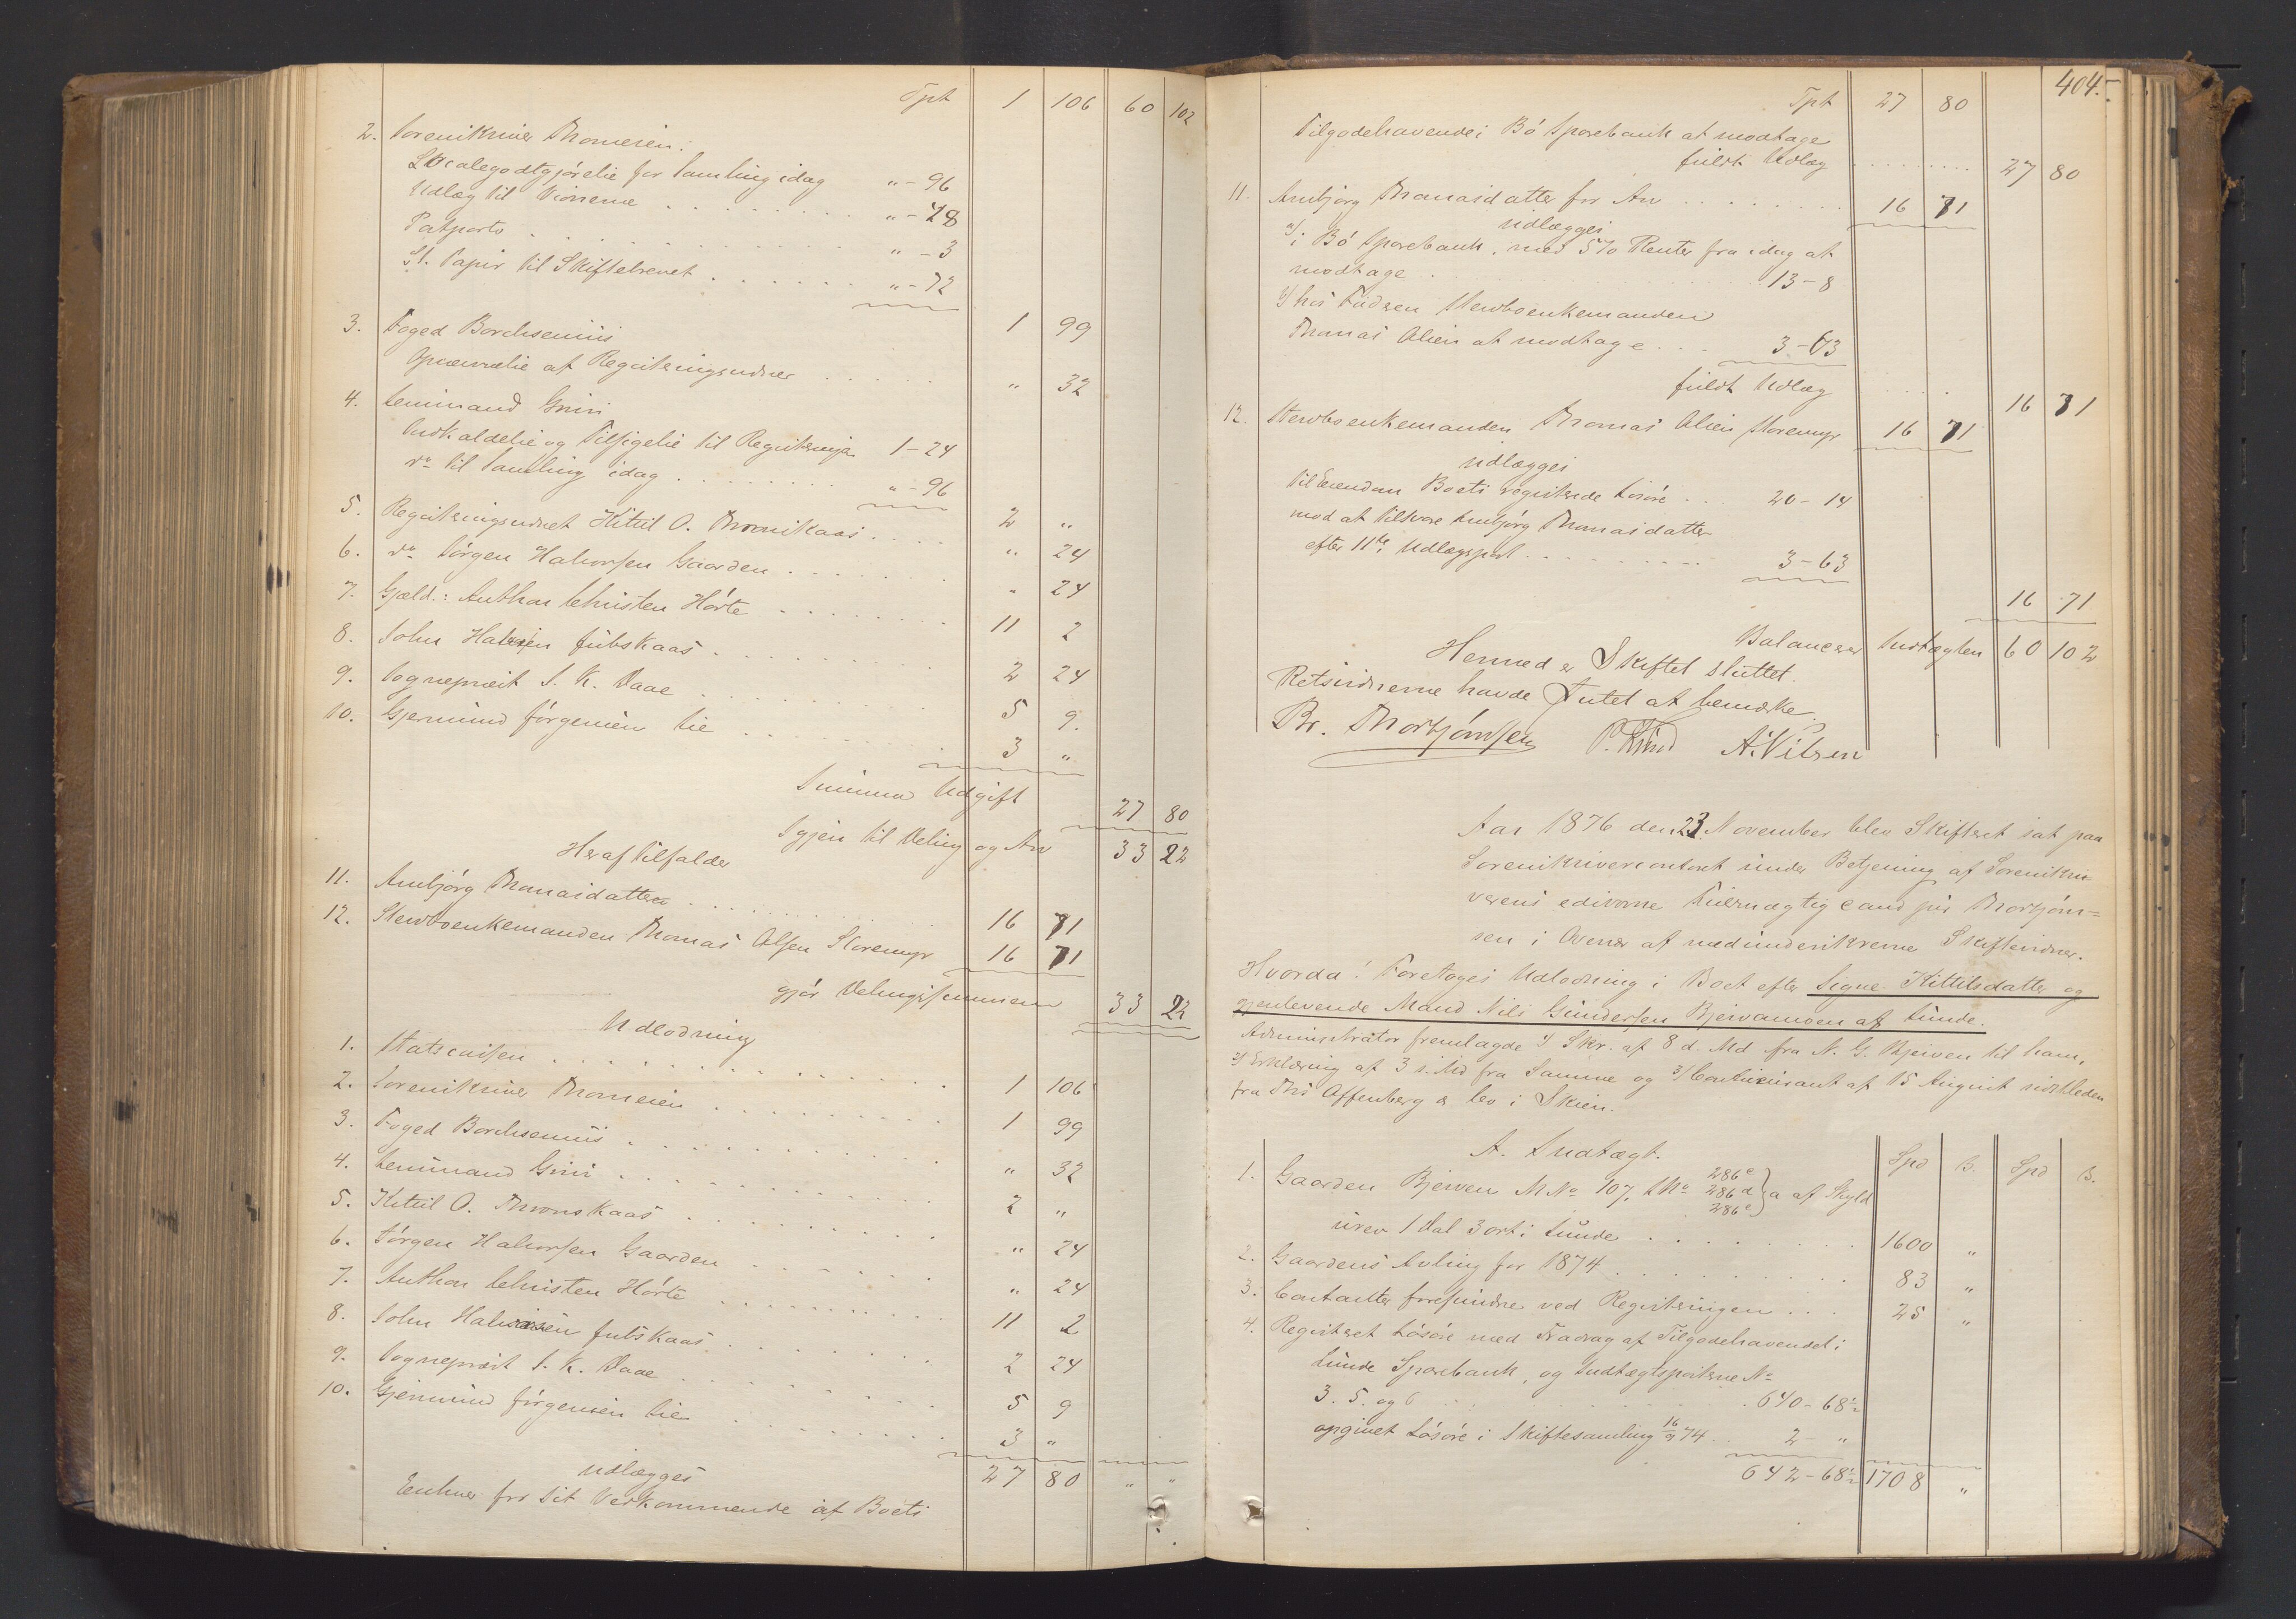 Tpt 1 106 60 102
2. Sorenskriver Thomesen:
Localegodtgjørelse for Samling idag "-96
Udlæg til Vidnerne "-28
Postporto "-3
St. Papir til Skiftebrevet "-72
1 99
3. Foged Borchsenius
Opnævnelse af Registreringsmænd " 32
4. Lensmand Grini
Indkaldelse og Tilsigelse til Registreringen 1-24
do til Samling idag "-96
2 "
5. Registreringsmand Kittil O. Thronskaas " 24
6. do Jörgen Halvorsen Gaarden " 24
7. Gjæld.: Anthon Christen Hörte 11 2
8. John Halvorsen Jubskaas 2 24
9. Sognepræst S. K. Vaae 5 9
10. Gjermund Jörgensen Lie 3 "
Summa Udgift 27 80
Igjen til Deling og Arv 33 22
Heraf tilfalder
11. Ambjörg Thomasdatter 16 71
12. Stervboenkemanden Thomas Olsen Storemyr 16 71
gjör Delingssummen 33 22
Udlodning
1. Statscassen 1 106
2. Sorenskriver Thomesen 1 99
3. Foged Borchsenius " 32
4. Lensmand Grini 2 "
5. Kittil O. Thronskaas " 24
6. Jörgen Halvorsen Gaarden " 24
7. Anthon Christen Hörte 11 2
8. John Halvorsen Jubskaas 2 24
9. Sognepræst S. K. Vaae 5 9
10. Gjermund Jörgensen Lie 3 "
27 80 " "
udlægges
Enhver for sit Vedkommende af Boets
404.
Tpt 27 80
Tilgodehavende i Bö Sparebank at modtage
fuldt Udlæg 27 80
11. Ambjörg Thomasdatter for Arv 16 71
udlægges
1) i Bö Sparebank, med 5% Renter fra idag at
modtage 13-8
2) hos Faderen Stervboenkemanden
Thomas Olsen at modtage 3-63
fuldt Udlæg 16 71
12. Stervboenkemanden Thomas Olsen Storemyr 16 71
udlægges
til Eiendom Boets registrerede Lösöre 20-14
mod at tilsvare Ambjörg Thomasdatter
efter 11te Udlægspost 3-63
16 71
Balancerer Indtægten 60 102
Hermed er Skiftet sluttet.
Retsvidnerne havde Intet at bemærke.
Br. Thorbjörnsen A. Nilsen
Aar 1876 den 23 November blev Skifteret sat paa
Sorenskrivercontoret under Betjening af Sorenskri-
verens edsvorne Fuldmægtig cand jur Thorbjörn=
sen i Overvær af medunderskrevne Skiftevidner.
Hvorda! Foretoges Udlodning i Boet efter Signe Kittilsdatter og
gjenlevende Mand Nils Gundersen Bjervamoen af Lunde.
Administrator fremlagde 1) Skr. af 8 d. Md fra N. G. Bjerven til ham,
2) Erklæring af 3 s. Md fra Samme og 3) af 15 August sidstleden
fra Ths Affenberg & Lev i Skien.
A. Indtægt. Spd ß. Spd ß.
1. Gaarden Bjerven M No 107, LNo 286c 286d 286e a af Skyld
urev 1 Dal 3 ort i Lunde 1600 "
2. Gaardens Avling for 1874 83 "
3. Contanter forefundne ved Registreringen 25 "
4. Registreret Lösöre med Fradrag af Tilgodehavendet i
Lunde Sparebank, og Indtægtsposterne No
3. 5. og 6 640-68½
opgivet Lösöre i Skiftesamling 16/9 74 2-"
642-68½ 1708 "